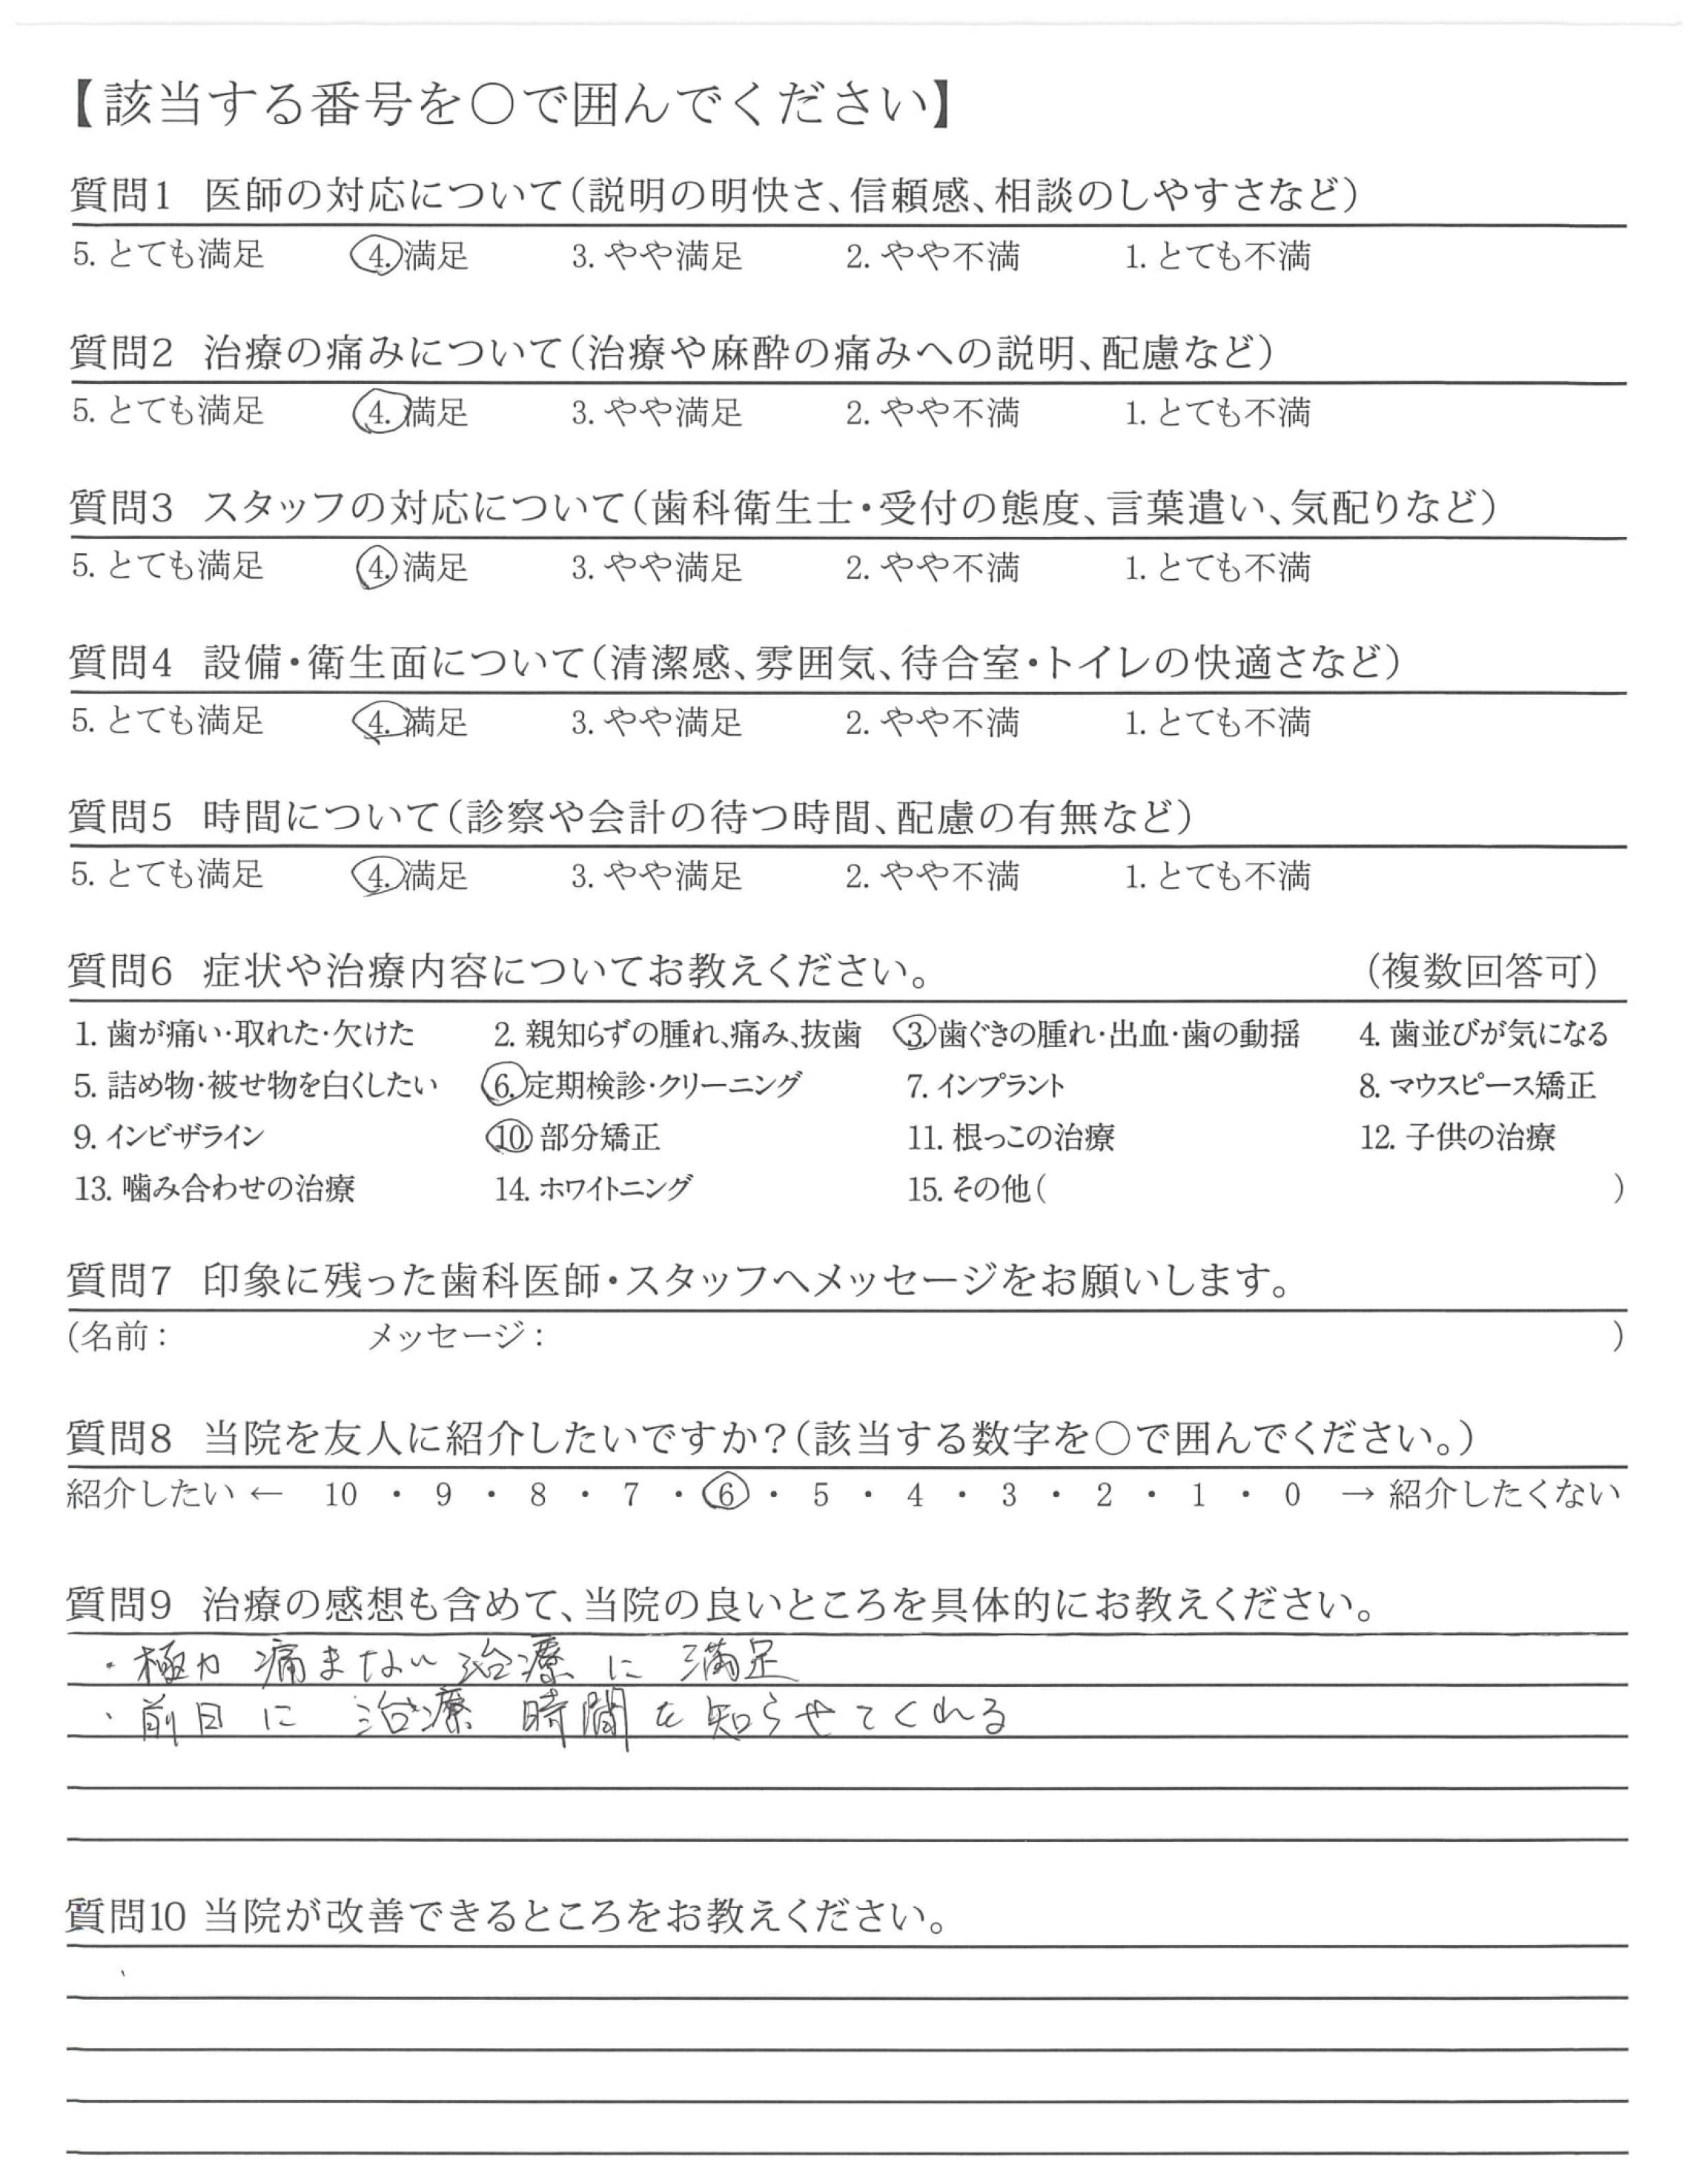 【該当する番号を○で囲んでください】
質問1 医師の対応について(説明の明快さ、信頼感、相談のしやすさなど)
5. とても満足 4. 満足 3. やや満足 2. やや不満 1. とても不満
質問2 治療の痛みについて(治療や麻酔の痛みへの説明、配慮など)
5. とても満足 4. 満足 3. やや満足 2. やや不満 1. とても不満
質問3 スタッフの対応について(歯科衛生士・受付の態度、言葉遣い、気配りなど)
5. とても満足 4. 満足 3. やや満足 2. やや不満 1. とても不満
質問4 設備・衛生面について(清潔感、雰囲気、待合室・トイレの快適さなど)
5. とても満足 4. 満足 3. やや満足 2. やや不満 1. とても不満
質問5 時間について(診察や会計の待つ時間、配慮の有無など)
5. とても満足 4. 満足 3. やや満足 2. やや不満 1. とても不満
質問6 症状や治療内容についてお教えください。 (複数回答可)
1. 歯が痛い・取れた・欠けた 2. 親知らずの腫れ、痛み、抜歯 3. 歯ぐきの腫れ・出血・歯の動揺 4. 歯並びが気になる
5. 詰め物・被せ物を白くしたい 6. 定期検診・クリーニング 7. インプラント 8. マウスピース矯正
9. インビザライン 10. 部分矯正 11. 根っこの治療 12. 子供の治療
13. 噛み合わせの治療 14. ホワイトニング 15. その他( )
質問7 印象に残った歯科医師・スタッフへメッセージをお願いします。
(名前: メッセージ: )
質問8 当院を友人に紹介したいですか?(該当する数字を○で囲んでください。)
紹介したい ← 10 ・ 9 ・ 8 ・ 7 ・ 6 ・ 5 ・ 4 ・ 3 ・ 2 ・ 1 ・ 0 → 紹介したくない
質問9 治療の感想も含めて、当院の良いところを具体的にお教えください。
・極力 痛まない 治療 に 満足
・前日 に 治療 時間 を 知らせてくれる
質問10 当院が改善できるところをお教えください。